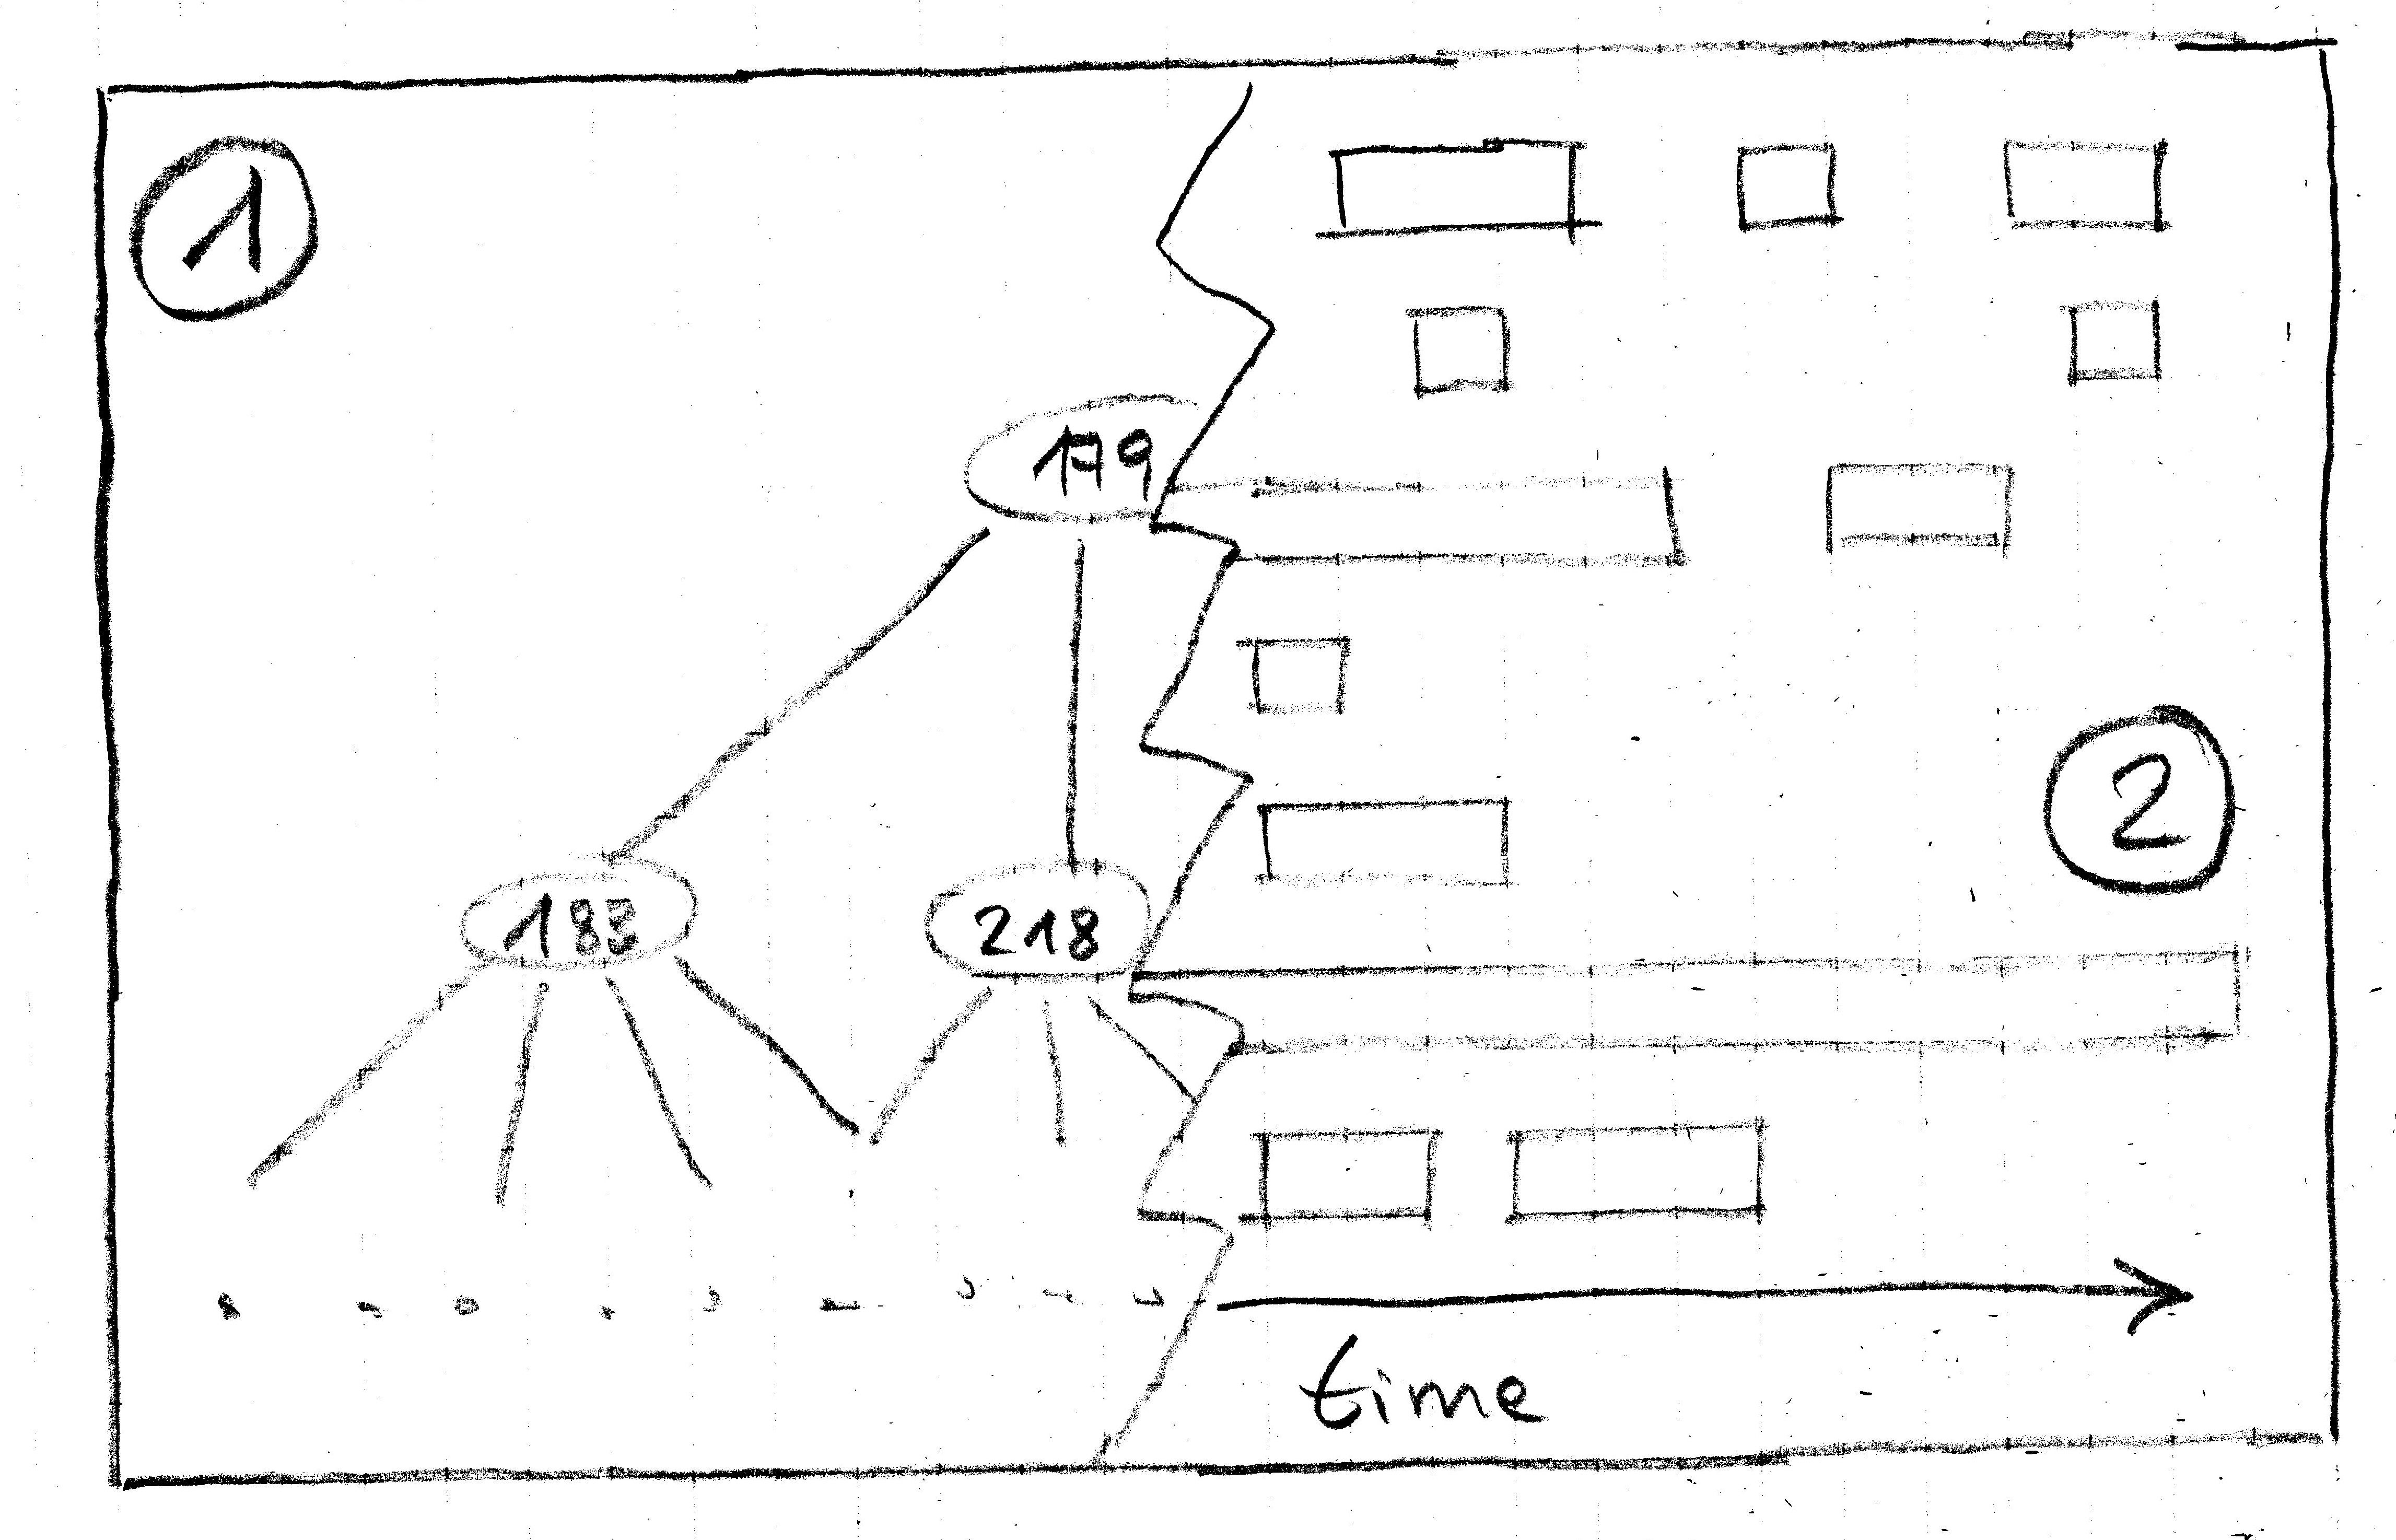 1
179
2
183
218
time